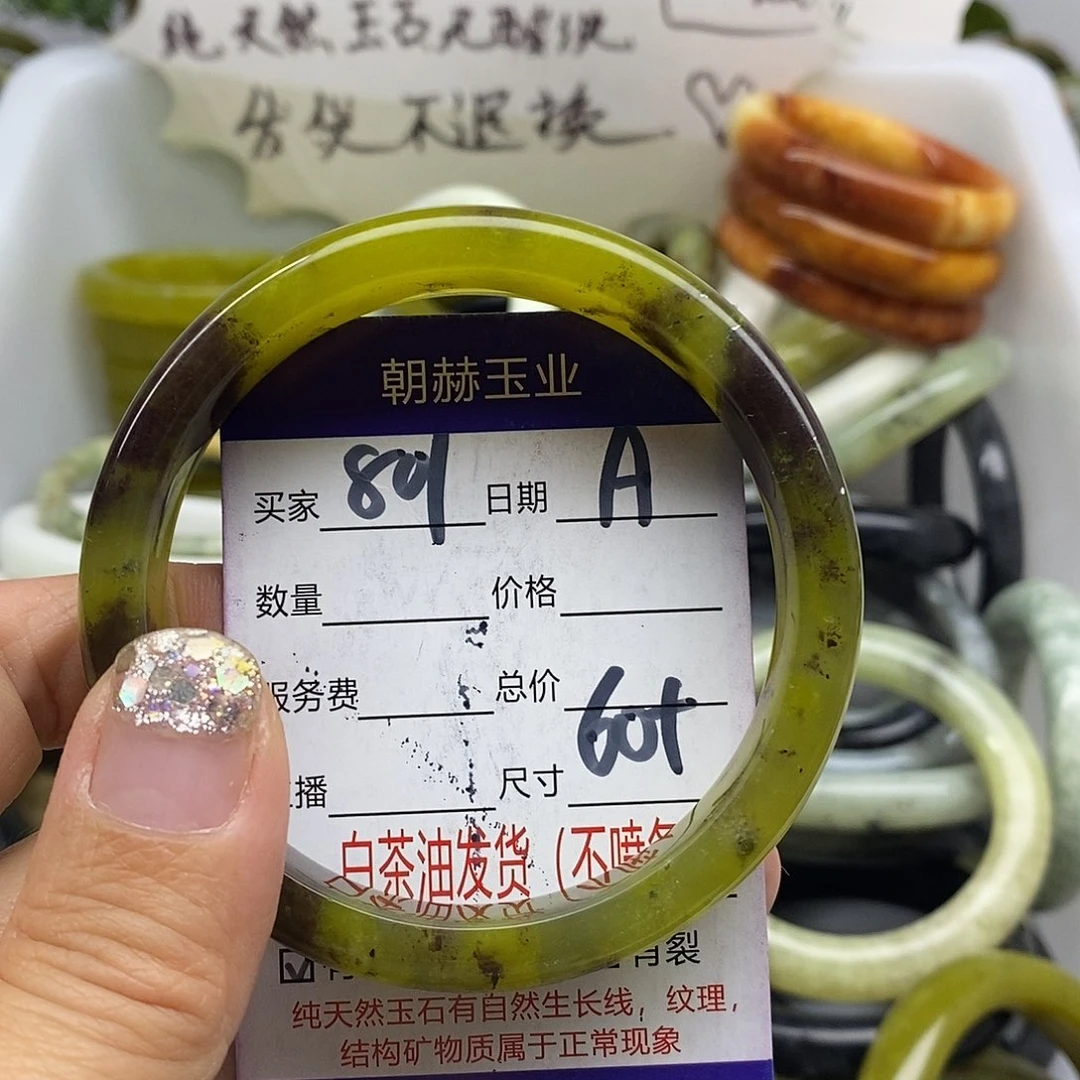 纯天然玉石无酸洗
售出不退换
朝赫玉业
买家 801 日期 A
数量 价格
服务费 总价
播 尺寸 60t
白茶油发货（不喷
有裂
纯天然玉石有自然生长线，纹理，
结构矿物质属于正常现象